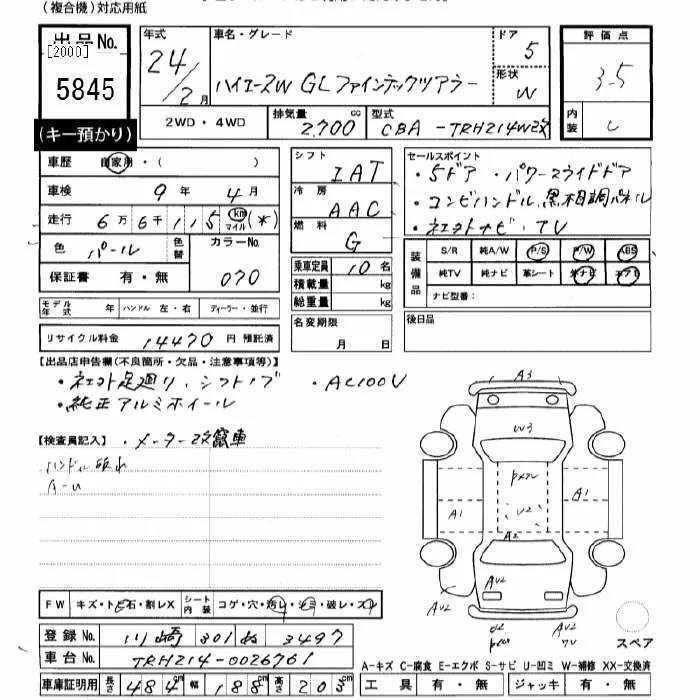 (複合機)対応用紙
出品No.
[2000]
5845
(キー預かり)
年式
24/2月
車名・グレード
ハイエースW GLファインテックツアラー
ドア
5
形状
W
評価点
3.5
内装
C
2WD・4WD
排気量
2,700
cc
型式
CBA-TRH214W改
車歴 自家用・( )
車検 9年 4月
走行 6万6千115 km マイル (*)
色 パール 色替 カラーNo. 070
保証書 有・無
モデル年式 年 ハンドル 左・右 ディーラー・並行
リサイクル料金 14470 円 預託済
シフト
IAT
冷房
AAC
燃料
G
乗車定員 10名
積載量 kg
総重量 kg
名変期限
月 日
セールスポイント
・5ドア ・パワースライドドア
・コンビハンドル,黒木目調パネル
・社外ナビ・TV
装備品
S/R 純A/W P/S P/W ABS
純TV 純ナビ 革シート エアB
ナビ型番:
後日品
【出品店申告欄(不良箇所・欠品・注意事項等)】
・社外足廻り、シフトノブ ・AC100V
・純正アルミホイール
【検査員記入】 ・メーター改竄車
A-U
A3
W3
U2
A2
A1
A1
AU2
AU2
AU2
FW キズ・ト石・割レX シート内装 コゲ・穴・汚レ・シミ・破レ・スレ
登録No. 川崎 301 3497
車台No. TRH214-0026761
車庫証明用 長さ 484 幅 188 高さ 203 cm
スペア
A-キズ C-腐食 E-エクボ S-サビ U-凹ミ W-補修 XX-交換済
工具 有・無 ジャッキ 有・無